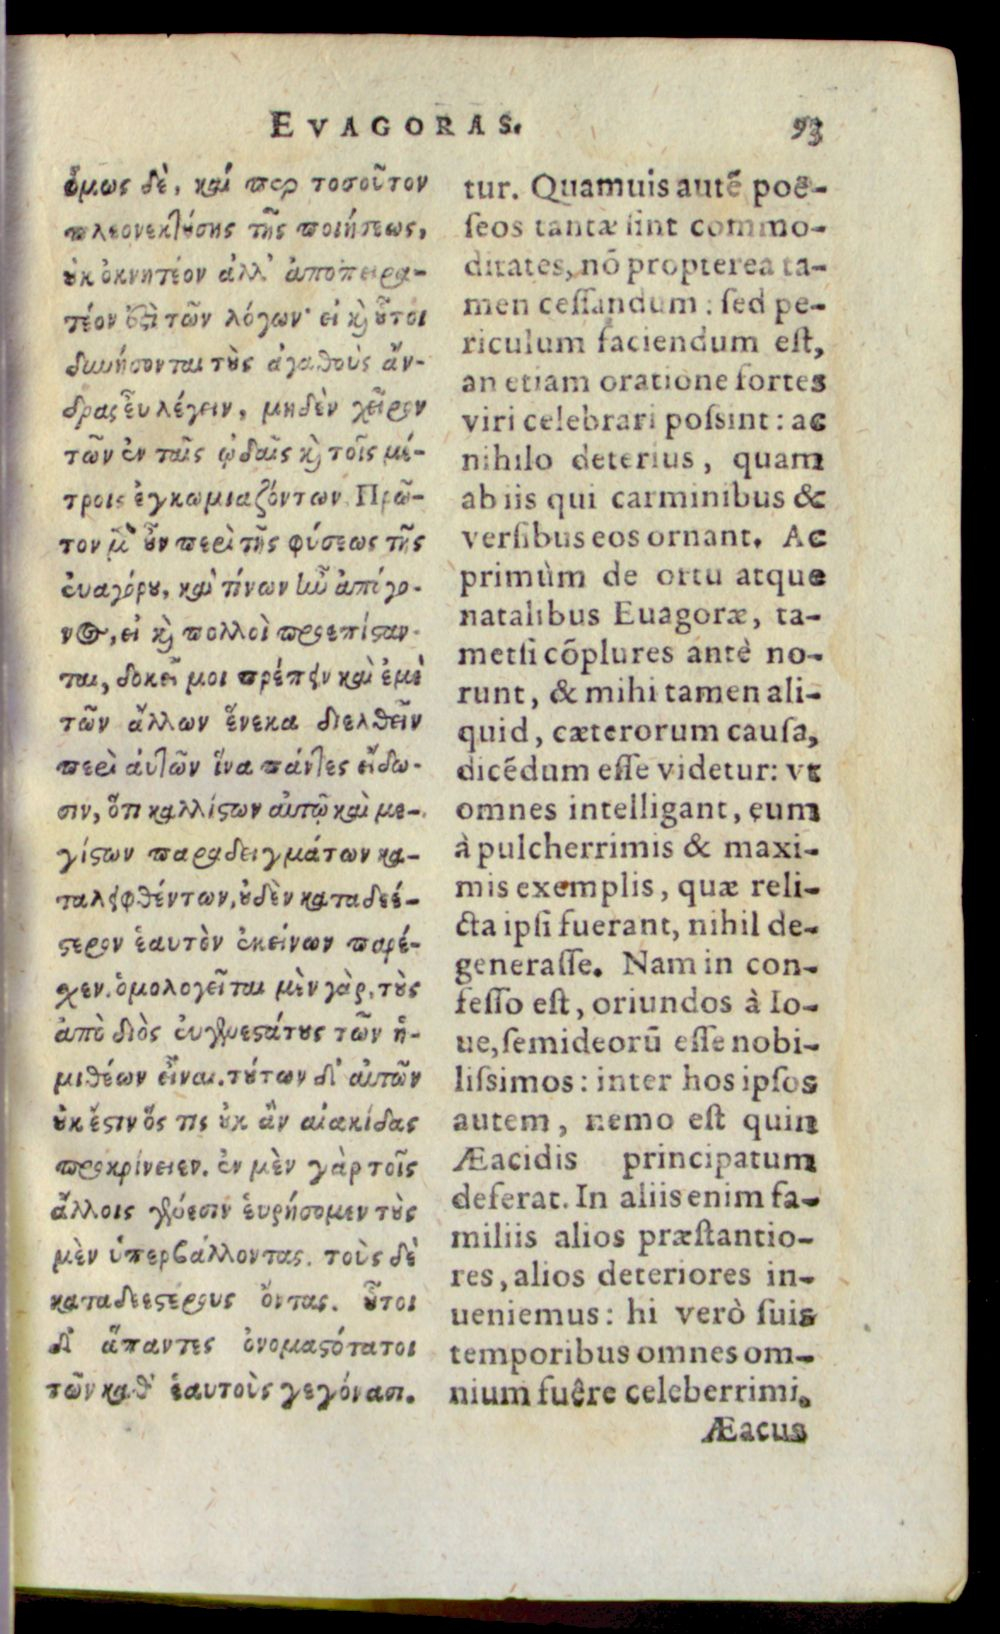 EVAGORAS. 93
ὅμως δὲ, καί περ τοσοῦτον
πλεονεκτούσης τῆς ποιήσεως,
οὐκ ὀκνητέον ἀλλ' ἀποπειρα-
τέον ἐςὶ τῶν λόγων· εἰ καὶ οὗτοι
δυνήσονται τοὺς ἀγαθοὺς ἄν-
δρας εὖ λέγειν, μηδὲν χεῖρον
τῶν ἐν ταῖς ᾠδαῖς καὶ τοῖς μέ-
τροις ἐγκωμιαζόντων. Πρῶ-
τον μὲν οὖν περὶ τῆς φύσεως τῆς
ἐυαγόρου, καὶ τίνων ἦν ἀπόγο-
νος, εἰ καὶ πολλοὶ προεπίςαν-
ται, δοκεῖ μοι πρέπειν καὶ ἐμὲ
τῶν ἄλλων ἕνεκα διελθεῖν
περὶ αὐτῶν ἵνα πάντες εἴδω-
σιν, ὅτι καλλίςων αὐτῷ καὶ με-
γίςων παραδειγμάτων κα-
ταλειφθέντων, οὐδὲν καταδεέ-
ςερον ἑαυτὸν ἐκείνων παρέ-
χεν. ὁμολογεῖται μὲν γὰρ, τοὺς
ἀπὸ διὸς ἐυγενεςάτους τῶν ἡ-
μιθέων εἶναι. τούτων δ' αὐτῶν
οὐκ ἔςιν ὅς τις οὐκ ἂν αἰακίδας
προκρίνειεν. ἐν μὲν γὰρ τοῖς
ἄλλοις γένεσιν ἑυρήσομεν τοὺς
μὲν ὑπερβάλλοντας. τοὺς δὲ
καταδεεςέρους ὄντας. οὗτοι
δ' ἅπαντες ὀνομαςότατοι
τῶν καθ' ἑαυτοὺς γεγόνασι.
tur. Quamuis autē poë-
seos tantæ sint commo-
ditates, nō propterea ta-
men cessandum: sed pe-
riculum faciendum est,
an etiam oratione fortes
viri celebrari possint: ac
nihilo deterius, quam
ab iis qui carminibus &
versibus eos ornant. Ac
primùm de ortu atque
natalibus Euagoræ, ta-
metsi cōplures antè no-
runt, & mihi tamen ali-
quid, cæterorum causa,
dicēdum esse videtur: vt
omnes intelligant, eum
à pulcherrimis & maxi-
mis exemplis, quæ reli-
cta ipsi fuerant, nihil de-
generasse. Nam in con-
fesso est, oriundos à Io-
ue, semideorū esse nobi-
lissimos: inter hos ipsos
autem, nemo est quin
Æacidis principatum
deferat. In aliis enim fa-
miliis alios præstantio-
res, alios deteriores in-
ueniemus: hi verò suis
temporibus omnes om-
nium fuêre celeberrimi.
Æacus